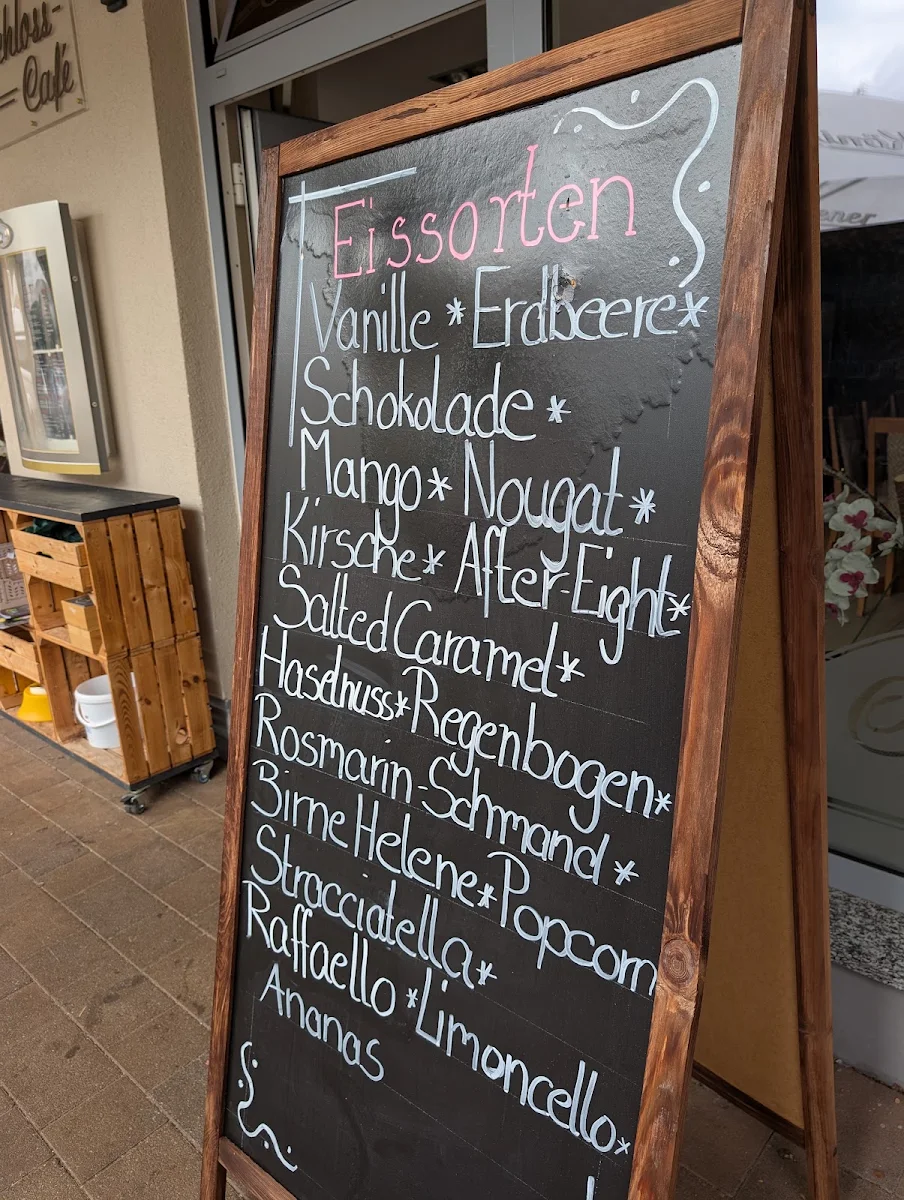 Schloss-
Café
Eissorten
Vanille * Erdbeere *
Schokolade *
Mango * Nougat *
Kirsche * After-Eight *
Salted Caramel *
Haselnuss * Regenbogen *
Rosmarin-Schmand *
Birne Helene * Popcorn
Stracciatella *
Raffaello * Limoncello *
Ananas